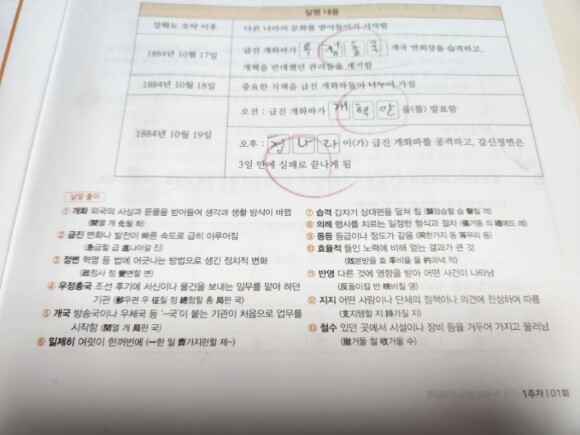 실행 내용
강화도 조약 이후 다른 나라의 문화를 받아들이기 시작함
1884년 10월 17일 급진 개화파가 우정총국 개국 연회장을 습격하고,
개혁을 반대했던 관리들을 제거함
1884년 10월 18일 중요한 직책을 급진 개화파들이 나누어 가짐
1884년 10월 19일 오전 : 급진 개화파가 개혁안 을(를) 발표함
오후 : 청나라 이(가) 급진 개화파를 공격하고, 갑신정변은
3일 만에 실패로 끝나게 됨
낱말 풀이
① 개화 외국의 사상과 문물을 받아들여 생각과 생활 방식이 바뀜
(開열 개 化될 화)
② 급진 변화나 발전이 빠른 속도로 급히 이루어짐
(急급할 급 進나아갈 진)
③ 정변 혁명 등 법에 어긋나는 방법으로 생긴 정치적 변화
(政정사 정 變변할 변)
④ 우정총국 조선 후기에 서신이나 물건을 보내는 임무를 맡아 하던
기관 (郵우편 우 征칠 정 總합할 총 局판 국)
⑤ 개국 방송국이나 우체국 등 '–국'이 붙는 기관이 처음으로 업무를
시작함 (開열 개 局판 국)
⑥ 일제히 여럿이 한꺼번에 (一한 일 齊가지런할 제–)
⑦ 습격 갑자기 상대편을 덮쳐 침 (襲엄습할 습 擊칠 격)
⑧ 의례 행사를 치르는 일정한 형식과 절차 (儀거동 의 禮예도 례)
⑨ 동등 등급이나 정도가 같음 (同한가지 동 等무리 등)
⑩ 효율적 들인 노력에 비해 얻는 결과가 큰 것
(效본받을 효 率비율 율 的과녁 적)
⑪ 반영 다른 것에 영향을 받아 어떤 사건이 나타남
(反돌이킬 반 映비칠 영)
⑫ 지지 어떤 사람이나 단체의 정책이나 의견에 찬성하여 따름
(支지탱할 지 持가질 지)
⑬ 철수 있던 곳에서 시설이나 장비 등을 거두어 가지고 물러남
(撤거둘 철 收거둘 수)
1주차 | 01회